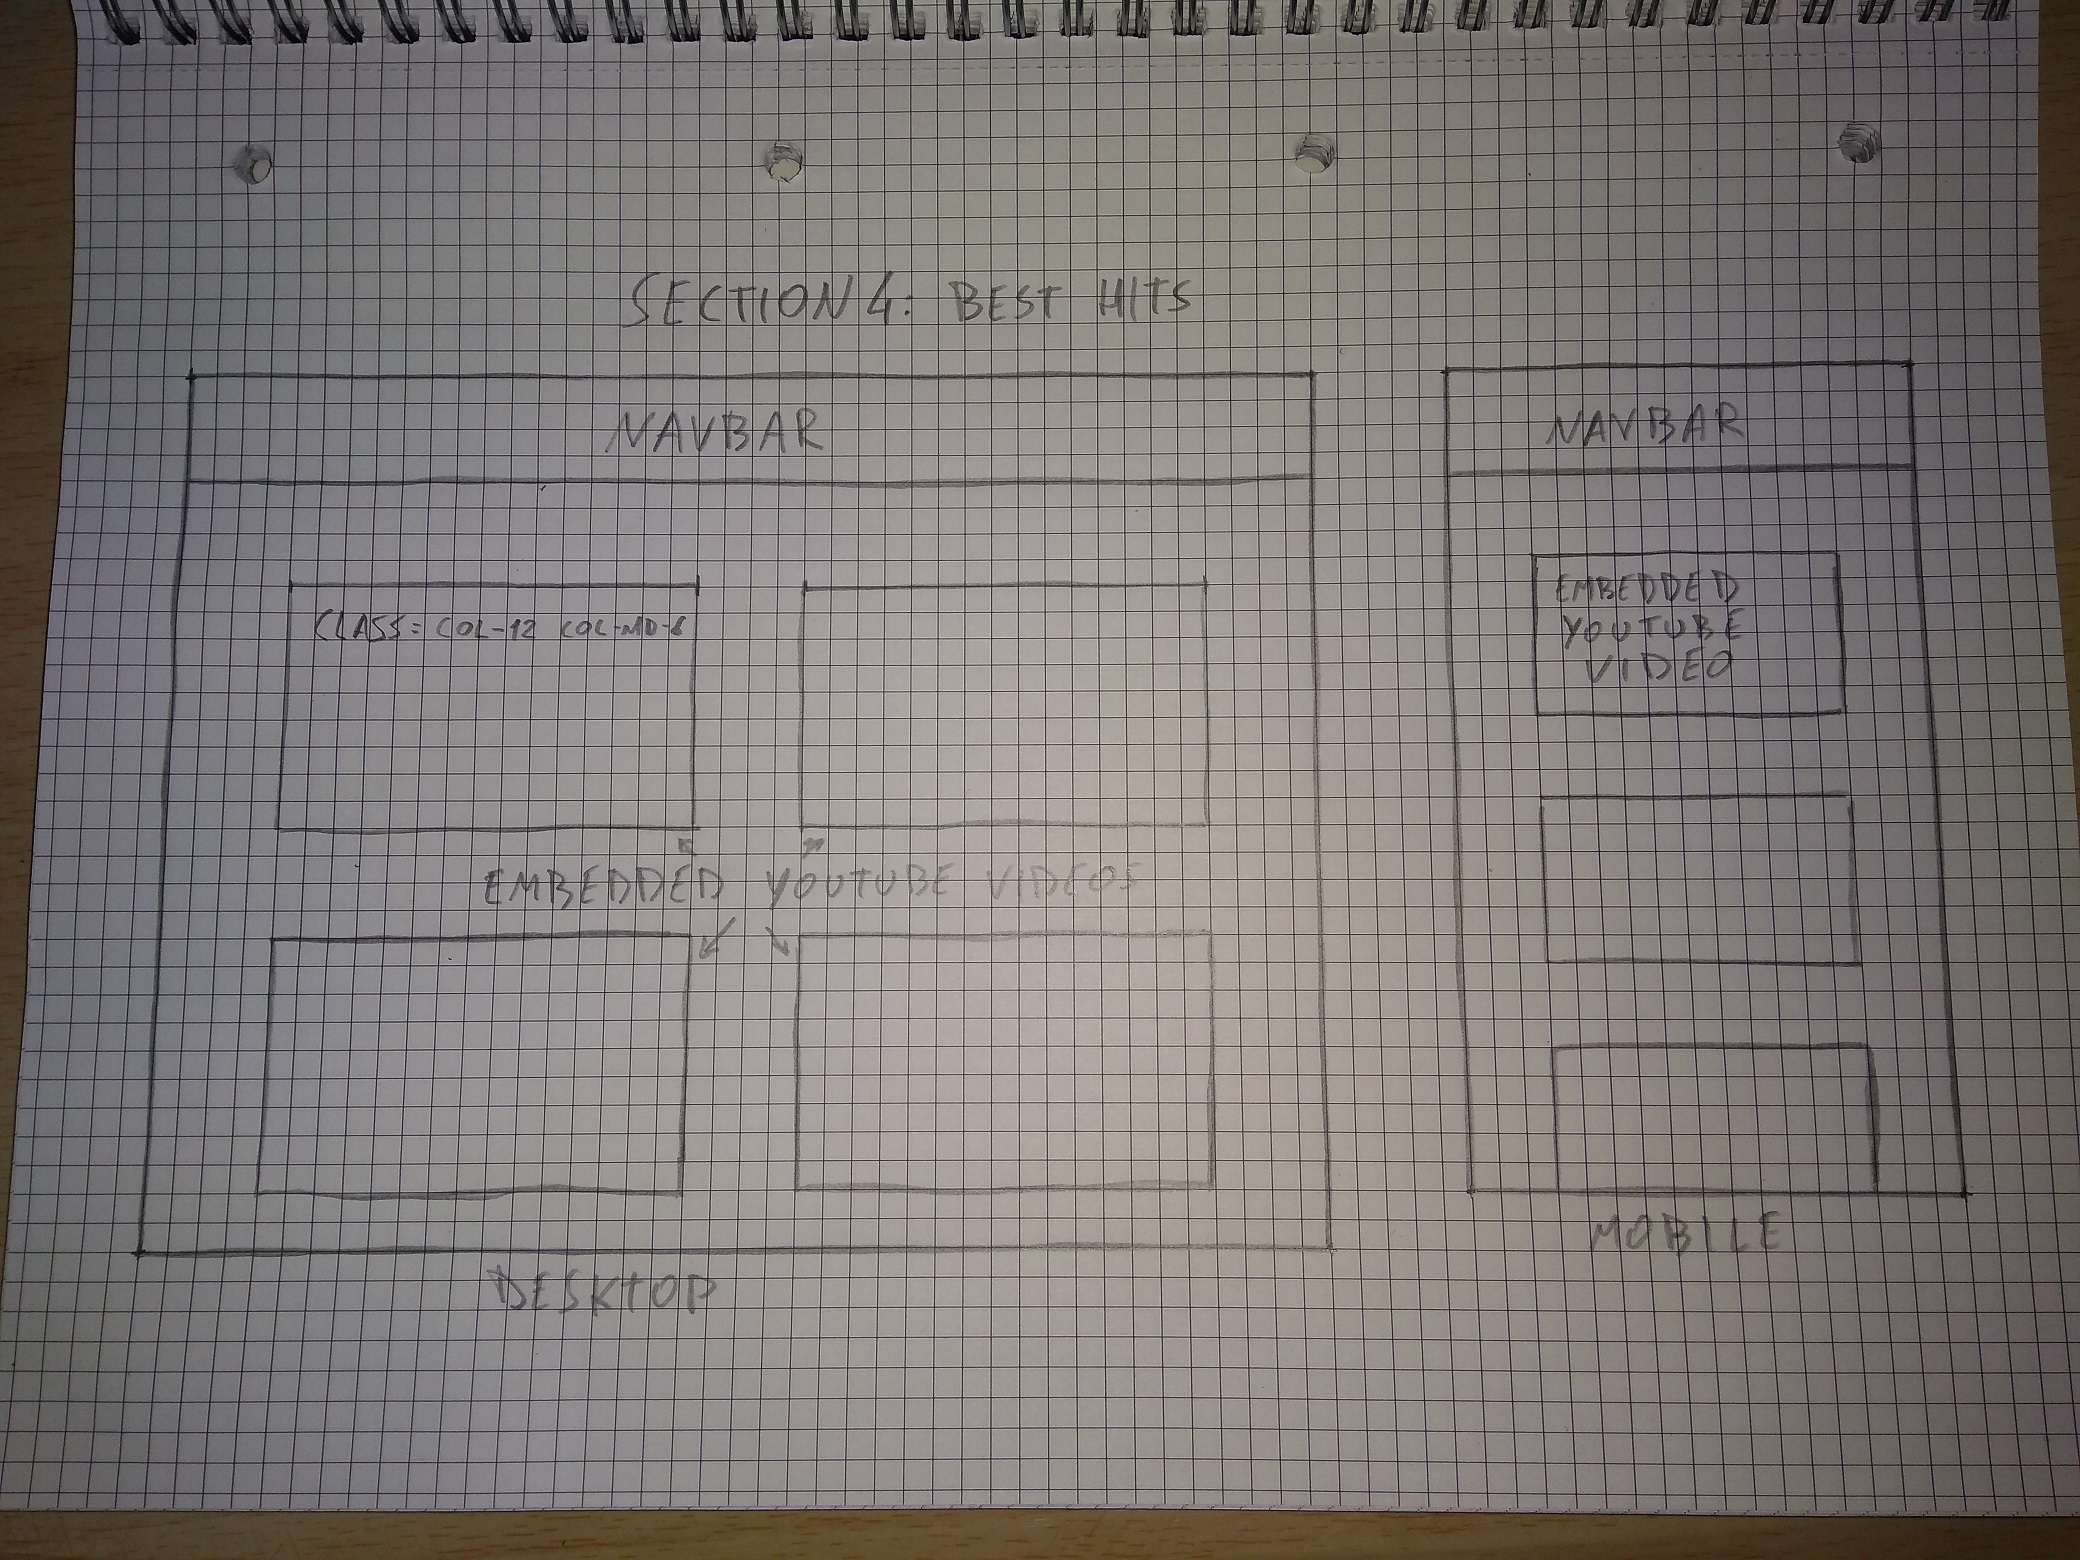 SECTION 4: BEST HITS
NAVBAR
CLASS= COL-12 COL-MD-6
EMBEDDED YOUTUBE VIDEOS
DESKTOP
NAVBAR
EMBEDDED
YOUTUBE
VIDEO
MOBILE